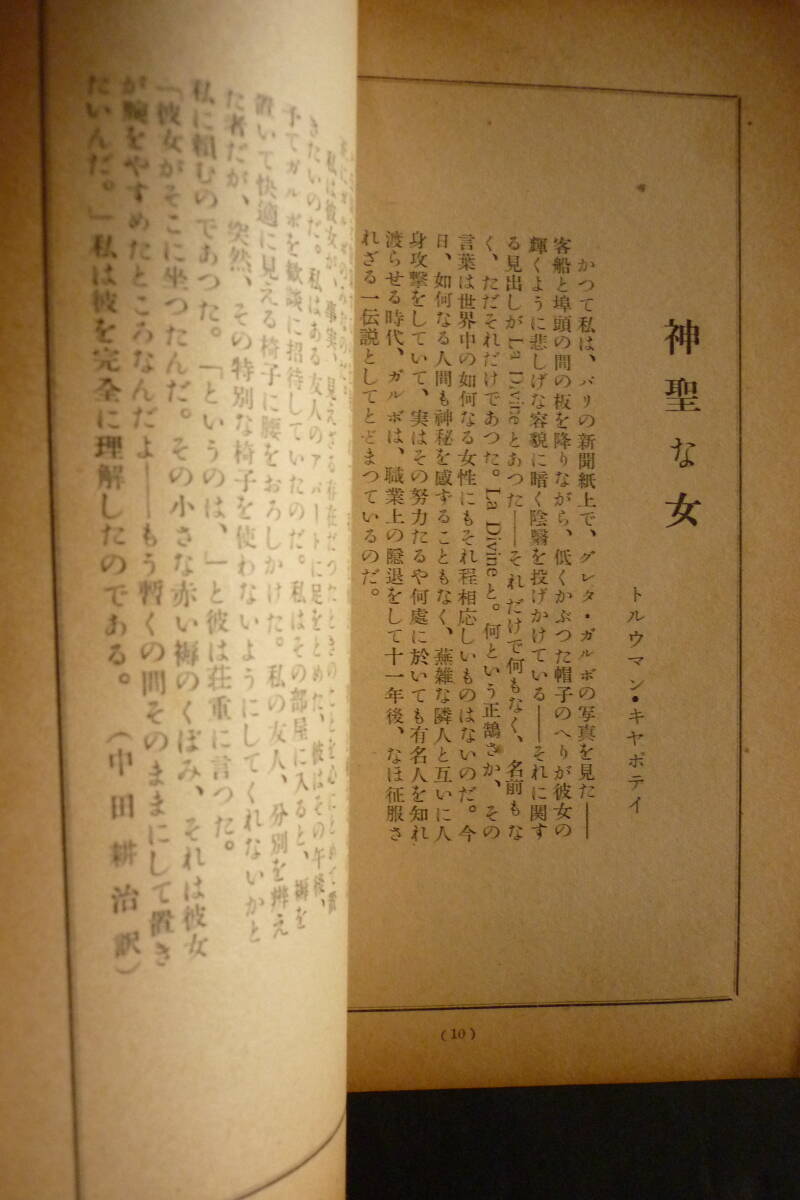 神聖な女
トルウマン・キヤポテイ
かつて私は、パリの新聞紙上で、グレタ・ガルボの写真を見た――
客船と埠頭の間の板を降りながら、低くかぶつた帽子のへりが彼女の
輝くように悲しげな容貌に暗く陰翳を投げかけている――それに関す
る見出しが La Divine とあつた――それだけで何もなく、名前もな
く、ただそれだけであつた。La Divine と。何という正鵠さか、その
言葉は世界中の如何なる女性にもそれ程相応しいものはないのだ。今
日、如何なる人間も神秘を感ずることもなく、蕪雑な隣人と互いに人
身攻撃をしていて、実はその努力たるや何處に於いても有名人を知れ
渡らせる時代、ガルボは、職業上の隠退をして十一年後、なほ征服さ
れざる一伝説としてとどまつているのだ。
(10)
私は彼女が、事実、見えざる存在だつたときのことを心にとめて置
きたいのだ。私はある友人のアパートに足をとめた、彼はその午後、
予てガルボを歓談に招待していたのだ。私はその部屋に入ると、褥を
置いて快適に見える椅子に腰をおろしかけた。私の友人、分別を辨え
た者だが、突然、その特別な椅子を使わないようにしてくれないかと
私に頼むのであつた。「というのは、」と彼は荘重に言つた。
「彼女がそこに坐つたんだ。その小さな赤い褥のくぼみ、それは彼女
が腕をやすめたところなんだよ――もう暫くの間そのままにして置き
たいんだ。」私は彼を完全に理解したのである。(中田耕治訳)